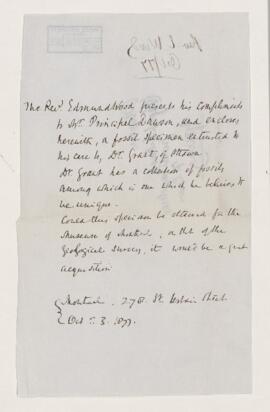 Rev E Wood
Oct/77
The Revd. Edmund Wood presents his compliments
to Dr. Principal Dawson, and encloses
herewith, a fossil specimen entrusted to
his care by Dr. Grant, of Ottawa
Dr. Grant has a collection of fossils
among which is one which he believes to
be unique.
Could this specimen be obtained for the
Museum of Montreal, or that of the
Geological Survey, it would be a great
acquisition
Montreal, 278. St. Urbain Street
Oct. 3. 1877.